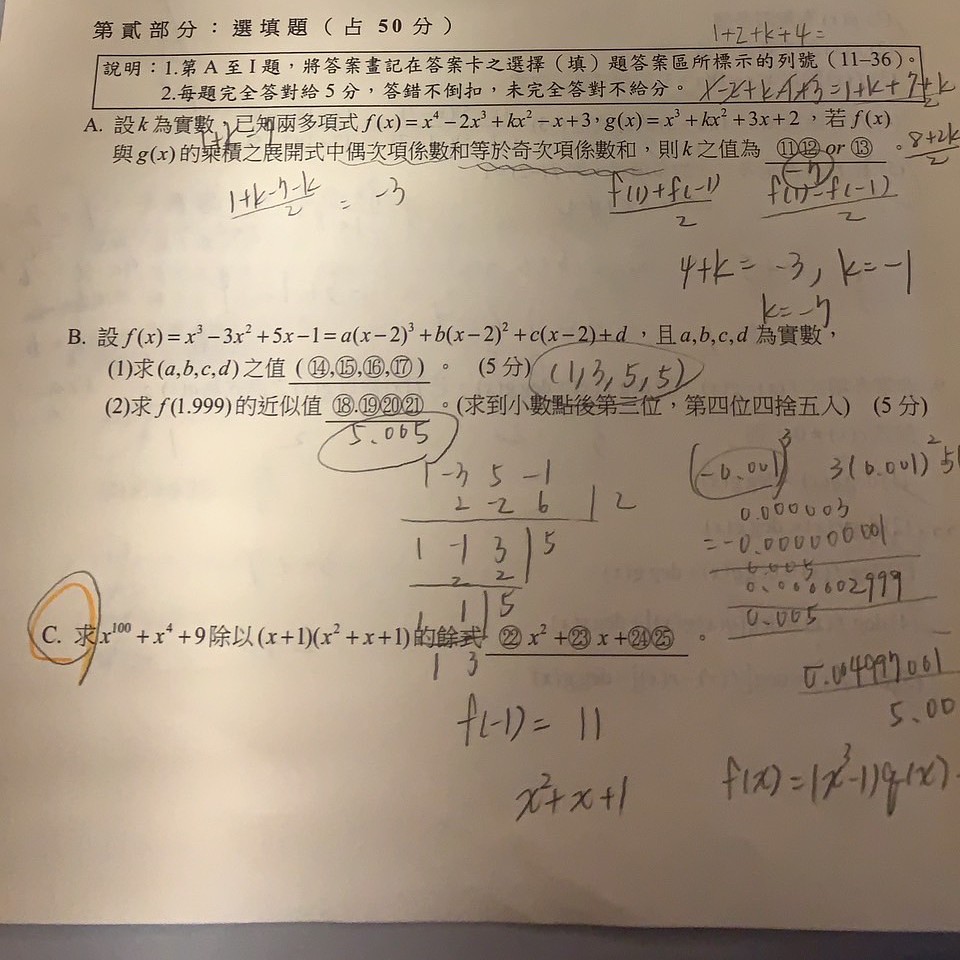 第貳部分：選填題（占 50 分）
1+2+k+4=
說明：1.第 A 至 I 題，將答案畫記在答案卡之選擇（填）題答案區所標示的列號（11–36）。
2.每題完全答對給 5 分，答錯不倒扣，未完全答對不給分。
A. 設 k 為實數，已知兩多項式 f(x)=x⁴−2x³+kx²−x+3，g(x)=x³+kx²+3x+2，若 f(x)
與 g(x) 的乘積之展開式中偶次項係數和等於奇次項係數和，則 k 之值為 ⑪⑫ or ⑬ 。
8+2k/2
-7
1+k-7-k/2 = -3
f(1)+f(-1)/2 f(1)-f(-1)/2
4+k= -3, k=-1
k=-7
B. 設 f(x)=x³−3x²+5x−1=a(x−2)³+b(x−2)²+c(x−2)+d ，且 a,b,c,d 為實數，
(1)求(a,b,c,d)之值 (⑭,⑮,⑯,⑰) 。 (5 分) (1,3,5,5)
(2)求 f(1.999) 的近似值 ⑱.⑲⑳㉑ 。(求到小數點後第三位，第四位四捨五入) (5 分)
5.005
1 -3 5 -1
2 -2 6 | 2
1 -1 3 | 5
2 2
1 1 | 5
(-0.001)³ 3(0.001)² 5
0.000003
=-0.000000001
0.005
0.000002999
0.005
C. 求 x¹⁰⁰+x⁴+9 除以 (x+1)(x²+x+1) 的餘式 ㉒ x²+㉓ x+㉔㉕ 。
1 3
0.004997001
5.00
f(-1)= 11
x²+x+1
f(x)=(x³-1)q(x)